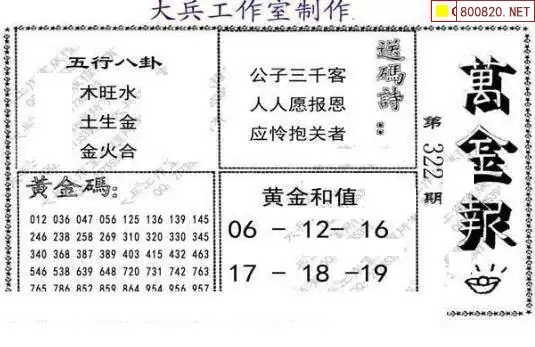 大兵工作室制作
800820.NET
五行八卦
木旺水
土生金
金火合
送码诗:
公子三千客
人人愿报恩
应怜抱关者
萬金報
第322期
黄金码:
012 036 047 056 125 136 139 145
246 238 258 269 310 320 330 345
340 368 387 389 403 415 432 463
546 538 639 648 720 731 742 763
765 786 852 859 864 954 956 957
黄金和值
06 - 12- 16
17 - 18 -19